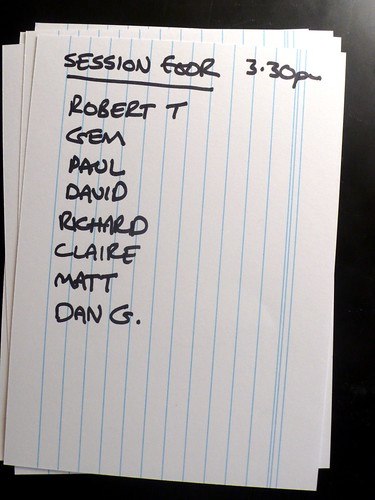 SESSION FOUR 3.30pm
ROBERT T
GEM
PAUL
DAVID
RICHARD
CLAIRE
MATT
DAN G.